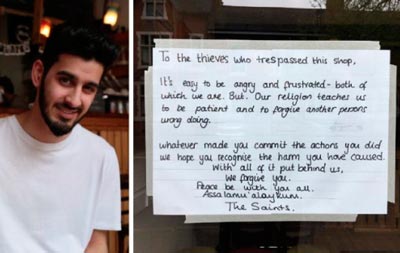 To the thieves who trespassed this shop,
It's easy to be angry and frustrated - both of
which we are. But. Our religion teaches us
to be patient and to forgive another persons
wrong doing.
whatever made you commit the actions you did
we hope you recognise the harm you have caused.
With all of it put behind us,
We forgive you.
Peace be with you all.
Assalamu'alaykum.
The Saints.